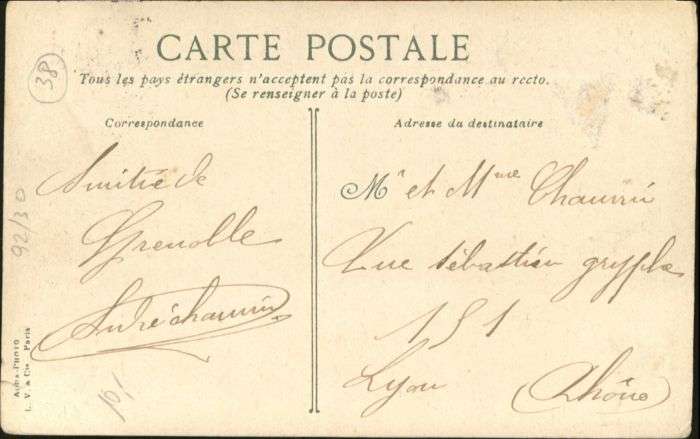 38
CARTE POSTALE
Tous les pays étrangers n'acceptent pas la correspondance au recto.
(Se renseigner à la poste)
Correspondance
Amitié de
Grenoble
André Chauvin
Adresse du destinataire
Mr et Mme Chauvin
Rue Sébastien gryphe
151
Lyon (Rhône)
92/30
AQUA-PHOTO
L. V. & Cie Paris